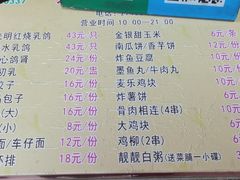 营业时间 10:00—21:00
光明红烧乳鸽 43元/只
水乳鸽 43元/只
心鸽肾 24元/份
初乳 20元/份
饺子 18元/份
包子 18元/份
(大) 10元/份
(小) 8元/份
面/车仔面 12元/份
排 18元/份
金银甜玉米 6元/条
南瓜饼/香芋饼
炸鱼豆腐
墨鱼丸/牛肉丸
麦乐鸡块
炸薯饼
骨肉相连(4串)
大鸡块
鸡柳(2串)
靓靓白粥(送菜脯一小碟)